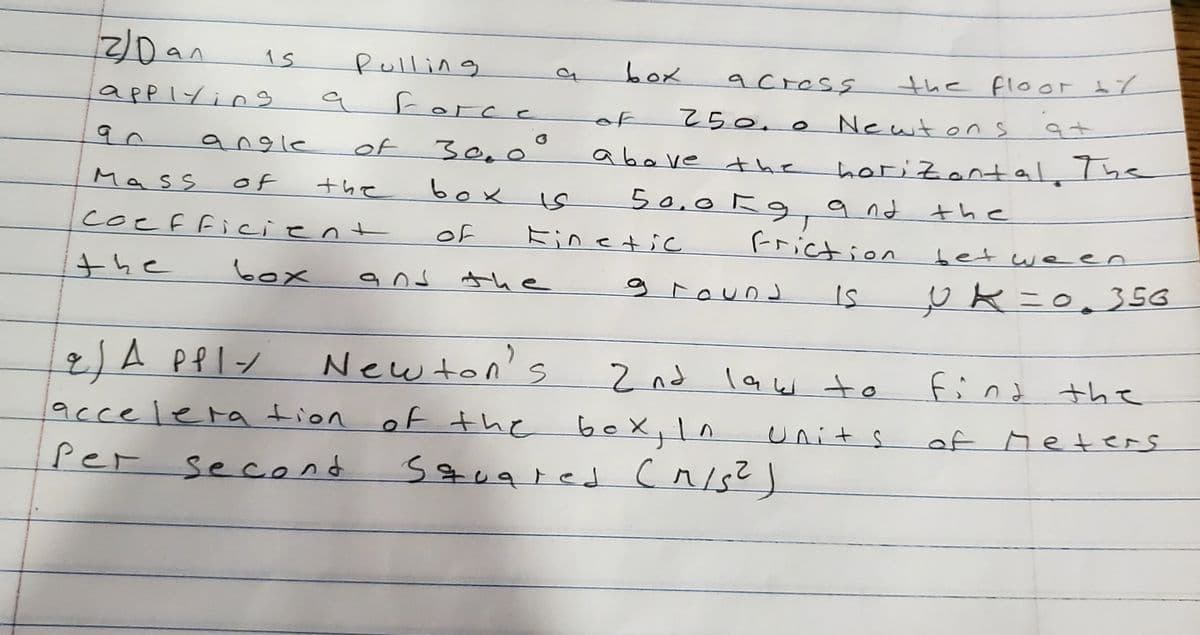 2) Dan is pulling a box across the floor by
applying a force of 250.0 Newtons at
an angle of 30.0° above the horizontal. The
Mass of the box is 50.0 kg, and the
coefficient of kinetic friction between
the box and the ground is μK = 0.356
a) Apply Newton's 2nd law to find the
acceleration of the box, in units of Meters
Per second squared (m/s²)